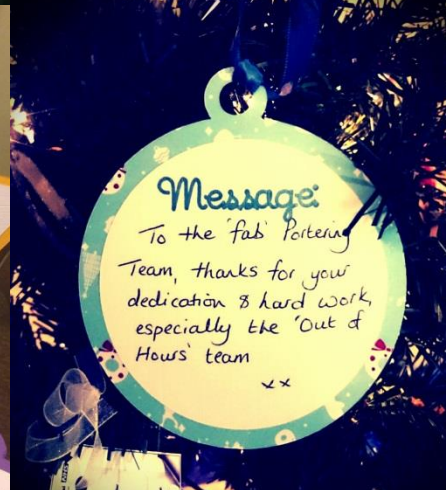 Message:
To the 'fab' Portering
Team, thanks for your
dedication & hard work,
especially the 'Out of
Hours' team
xx